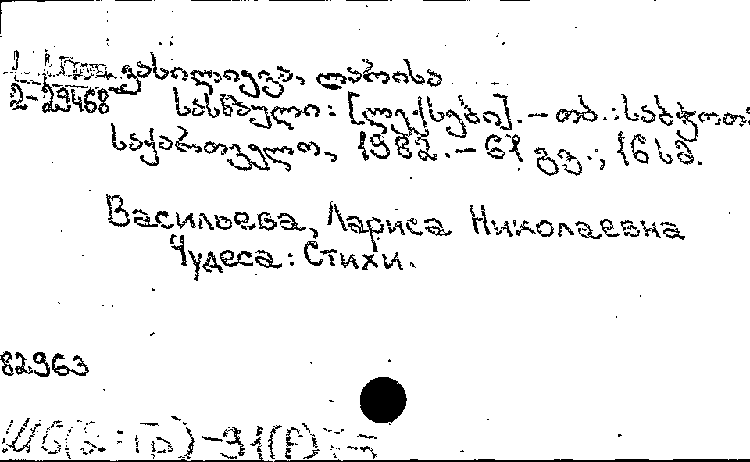 ვასილიევა, ლარისა
2-29468 სასწაული: [ლექსები]. - თბ.: საბჭოთა
საქართველო, 1982. - 61 გვ.; 16 სმ.
Васильева, Лариса Николаевна
Чудеса: Стихи.
82963